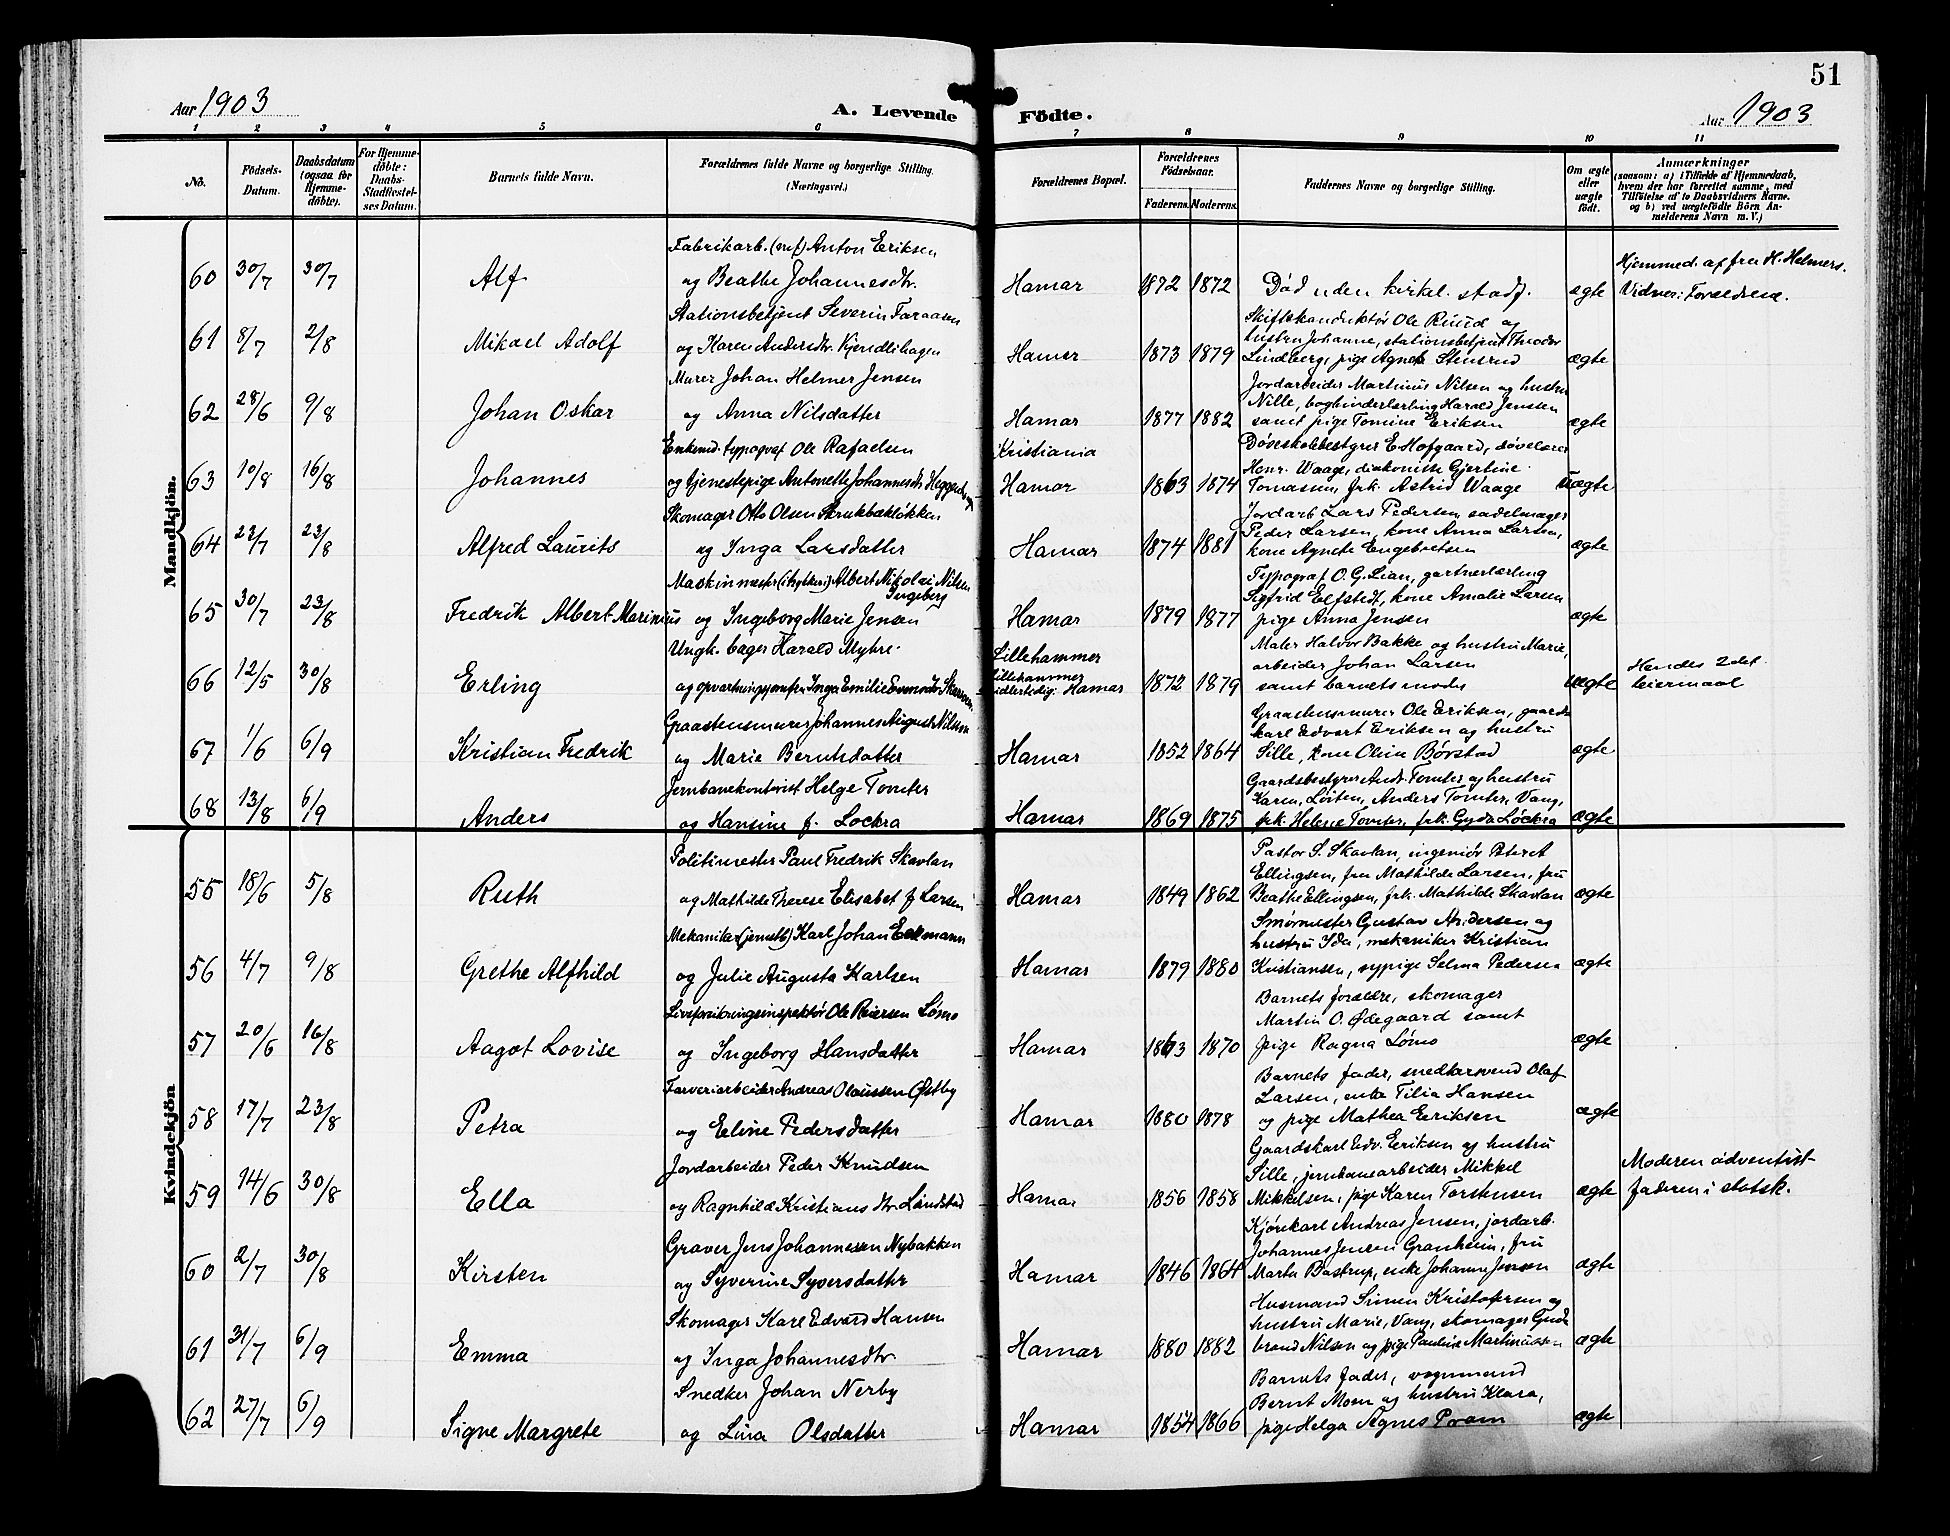 51
Aar 1903
A. Levende Födte.
Aar 1903
1 2 3 4 5 6 7 8 9 10 11
No.
Födsels-Datum.
Daabsdatum (ogsaa for Hjemme-döbte).
For Hjemme-döbte: Daabs-Stadfæstel-ses Datum.
Barnets fulde Navn.
Forældrenes fulde Navne og borgerlige Stilling. (Næringsvei.)
Forældrenes Bopæl.
Forældrenes Födselsaar.
Faderens. Moderens.
Faddernes Navne og borgerlige Stilling.
Om ægte eller uægte födt.
Anmærkninger
(saasom: a) i Tilfælde af Hjemmedaab, hvem der har forrettet samme, med Tilföielse af to Daabsvidners Navne, og b) ved uægtefödte Börn An-melderens Navn m. V.)
Mandkjön.
Fabrikarb. Anton Eriksen
60 30/7 30/7 Alf og Beathe Johannesdtr. Hamar 1872 1872 Död uden kirkel. stadf. ægte
Hjemmed. af fru H. Helmers.
Vidner: Forældrene.
Stationsbetjent Severin Faraasen
61 8/7 2/8 Mikael Adolf og Karen Andersdtr. Kjendlihagen Hamar 1873 1879
Skiftekonduktör Ole Ruud og
hustru Johanne, stationsbetjent Theodor
Lindberg, pige Agnete Stensrud ægte
Murer Johan Helmer Jensen
62 28/6 9/8 Johan Oskar og Anna Nilsdatter Hamar 1877 1882
Jordarbeider Martinus Nilsen og hustru
Nille, bogbinderlærling Harald Jenssen
samt pige Tomine Eriksen ægte
Enkemd. typograf Ole Rafaelsen Kristiania
63 10/8 16/8 Johannes og tjenestepige Antonette Johannesdtr. Hamar 1863 1874
Döveskolebestyrer E. Hofgaard, dövelærer
Henr. Waage, diakonisse Gjertine
Tomassen, frk. Astrid Waage Uægte
Skomager Otto Olsen Strukbækløkken
64 23/8 Alfred Laurits og Inga Larsdatter Hamar 1874 1881
Jordarb Lars Pedersen, sadelmager
Peder Larsen, kone Anna Larsen,
kone Agnete Engebretsen ægte
Maskinmester Albert Nikolai Nilsen
Ingeberg
65 30/7 23/8 Fredrik Albert Marinius og Ingeborg Marie Jensen Hamar 1879 1877
Typograf O. G. Lian, gartnerlærling
Sigfrid Elfstedt, kone Amalie Larsen
pige Anna Jensen ægte
Ungk. bager Harald Myhre. Lillehammer
66 12/5 30/8 Erling og opvartningsjomfru Inga Emilie Lillehammer midlertidig: Hamar 1872 1879
Maler Halvor Bakke og hustru Marie,
arbeider Johan Larsen
samt barnets moder uægte
Hendes 2det
leiermaal
Graastensmurer Johannes August Nilsson
67 1/6 6/9 Kristian Fredrik og Marie Berntsdatter Hamar 1852 1864
Graastensmurer Ole Eriksen, gaards
karl Edvart Eriksen og hustru
Sille, kone Olina Børstad ægte
Jernbanekontorist Helge Tomter
68 13/8 6/9 Anders og Hansine f. Lockra Hamar 1869 1875
Gaardsbestyrer Andr. Tomter og hustru
Karen, Löiten, Anders Tomter, Vang,
frk. Helene Tomter, frk. Gyda Löckra ægte
Kvindekjön
Politimester Paul Fredrik Skavlan
55 18/6 5/8 Ruth og Mathilde Therese Elisabet f. Larsen Hamar 1849 1862
Pastor S. Skavlan, ingeniör Peter
Ellingsen, fru Mathilde Larsen, fru
Beathe Ellingsen, frk. Mathilde Skavlan ægte
Mekaniker (jernstb) Karl Johan Eckmann
56 4/7 9/8 Grethe Alfhild og Julie Augusta Karlsen Hamar 1879 1880
Smörmester Gustav Andersen og
hustru Ida, mekaniker Kristian
Kristiansen, sypige Selma Pedersen ægte
Livsforsikringsinspektör Ole Reiersen Lömo
57 20/6 16/8 Aagot Lovise og Ingeborg Hansdatter Hamar 1863 1870
Barnets forældre, skomager
Martin O. Ødegaard samt
pige Ragna Lömo ægte
Farveriarbeider Andreas Olaussen Østby
58 17/7 23/8 Petra og Eline Pedersdatter Hamar 1880 1878
Barnets fader, snedkersvend Olaf
Larsen, enke Tilia Hansen
og pige Mathea Eriksen ægte
Jordarbeider Peder Knudsen
59 14/6 30/8 Ella og Ragnhild Kristiansdtr. Lundstad Hamar 1856 1858
Gaardskarl Edv. Eriksen og hustru
Sille, jernbanearbeider Mikkel
Mikkelsen, pige Karen Torstensen ægte
Moderen adventist
faderen i statsk.
Graver Jens Johannesen Nybakken
60 2/7 30/8 Kirsten og Syverine Syversdatter Hamar 1846 1864
Kjörekarl Andreas Jensen, jordarb.
Johannes Jensen Granheim, fru
Marta Bastrup, enke Johanne Jensen ægte
Skomager Karl Edvard Hansen
61 31/7 6/9 Emma og Inga Johannesdtr. Hamar 1880 1882
Husmand Simen Kristofersen og
hustru Marie, Vang, skomager Gud-
brand Nilsen og pige Pauline Martinussen ægte
Snedker Johan Nerby
62 27/7 6/9 Signe Margrete og Lina Olsdatter Hamar 1854 1866
Barnets fader, vognmand
Bernt Moen og hustru Klara,
pige Helga Agnes Pram ægte